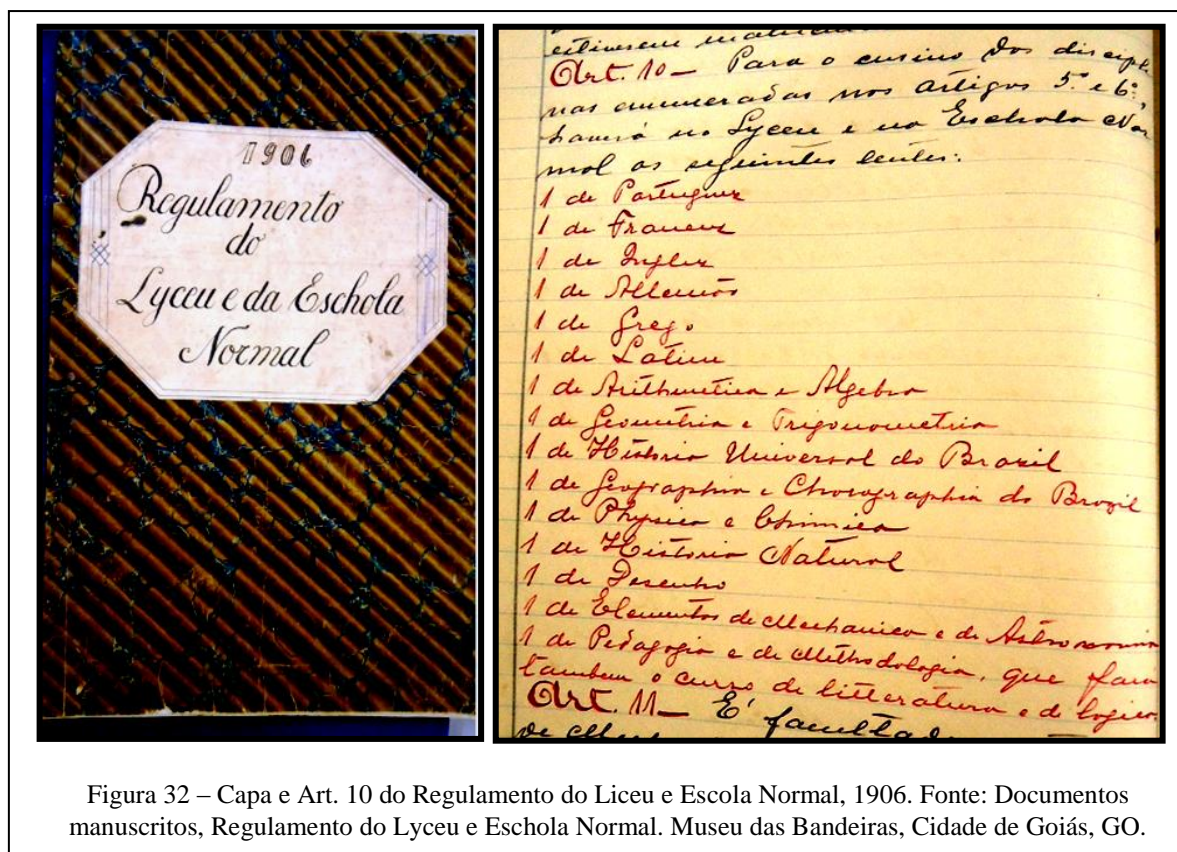 1906
Regulamento
do
Lyceu e da Eschola
Normal
estivesem
Art. 10 — Para o ensino das discipli
nas enumeradas nos artigos 5º e 6º,
haverá no Lyceu e na Eschola Nor
mal os seguintes lentes:
1 de Portuguez
1 de Francez
1 de Inglez
1 de Allemão
1 de Grego
1 de Latim
1 de Arithmetica e Algebra
1 de Geometria e Trigonometria
1 de Historia Universal do Brazil
1 de Geographia e Chorographia do Brazil
1 de Physica e Chimica
1 de Historia Natural
1 de Desenho
1 de Elementos de Mechanica e de Astronomia
1 de Pedagogia e de Methodologia, que fara
tambem o curso de litteratura e de logica.
Art. 11 — E' facultado
de
Figura 32 – Capa e Art. 10 do Regulamento do Liceu e Escola Normal, 1906. Fonte: Documentos
manuscritos, Regulamento do Lyceu e Eschola Normal. Museu das Bandeiras, Cidade de Goiás, GO.